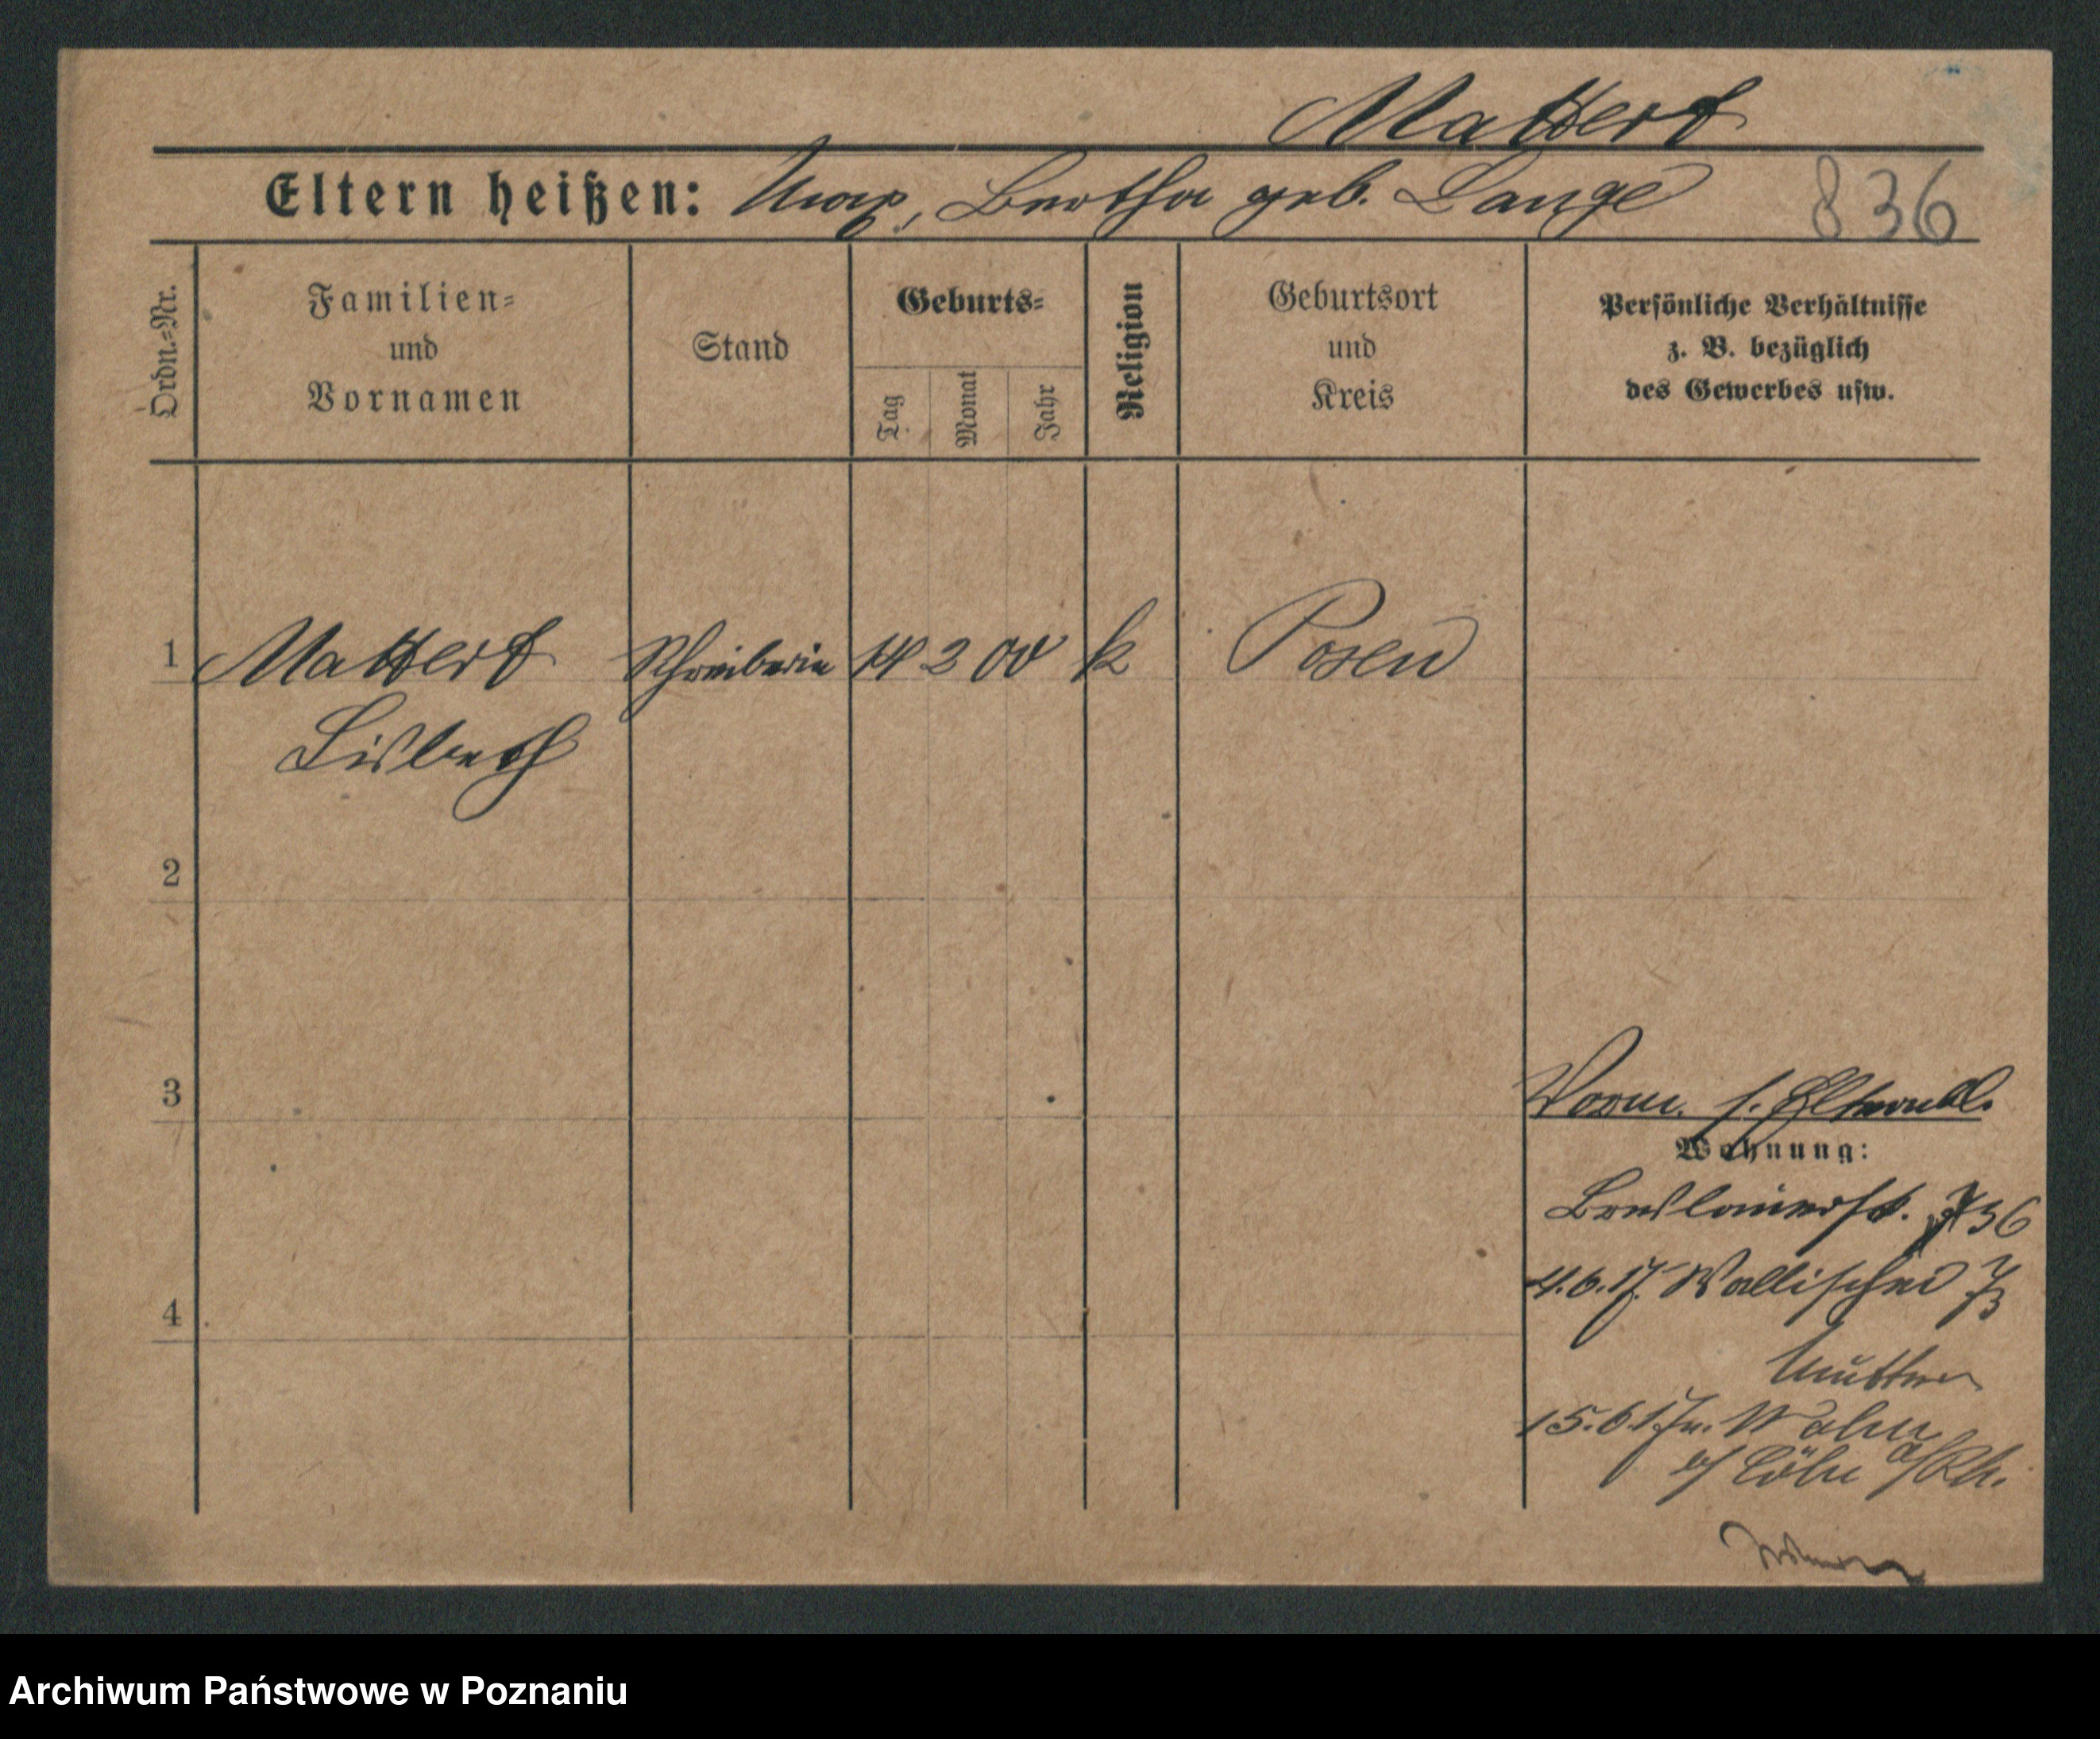 Mattert
Eltern heißen: Max, Bertha geb. Lange 836
Ordn.=Nr.
Familien=
und
Vornamen
Stand
Geburts=
Tag
Monat
Jahr
Religion
Geburtsort
und
Kreis
Persönliche Verhältnisse
z. B. bezüglich
des Gewerbes usw.
1 Mattert Schreiberin 14 2 00 k Posen
Lisbeth
2
3
Vorm. s. Elternbl.
Wohnung:
Breslauerst. 36
4.6.17. Wallischei 73
4
Mutter
15.6.17 n. Wahn
b/ Cöln a/Rh.
Archiwum Państwowe w Poznaniu